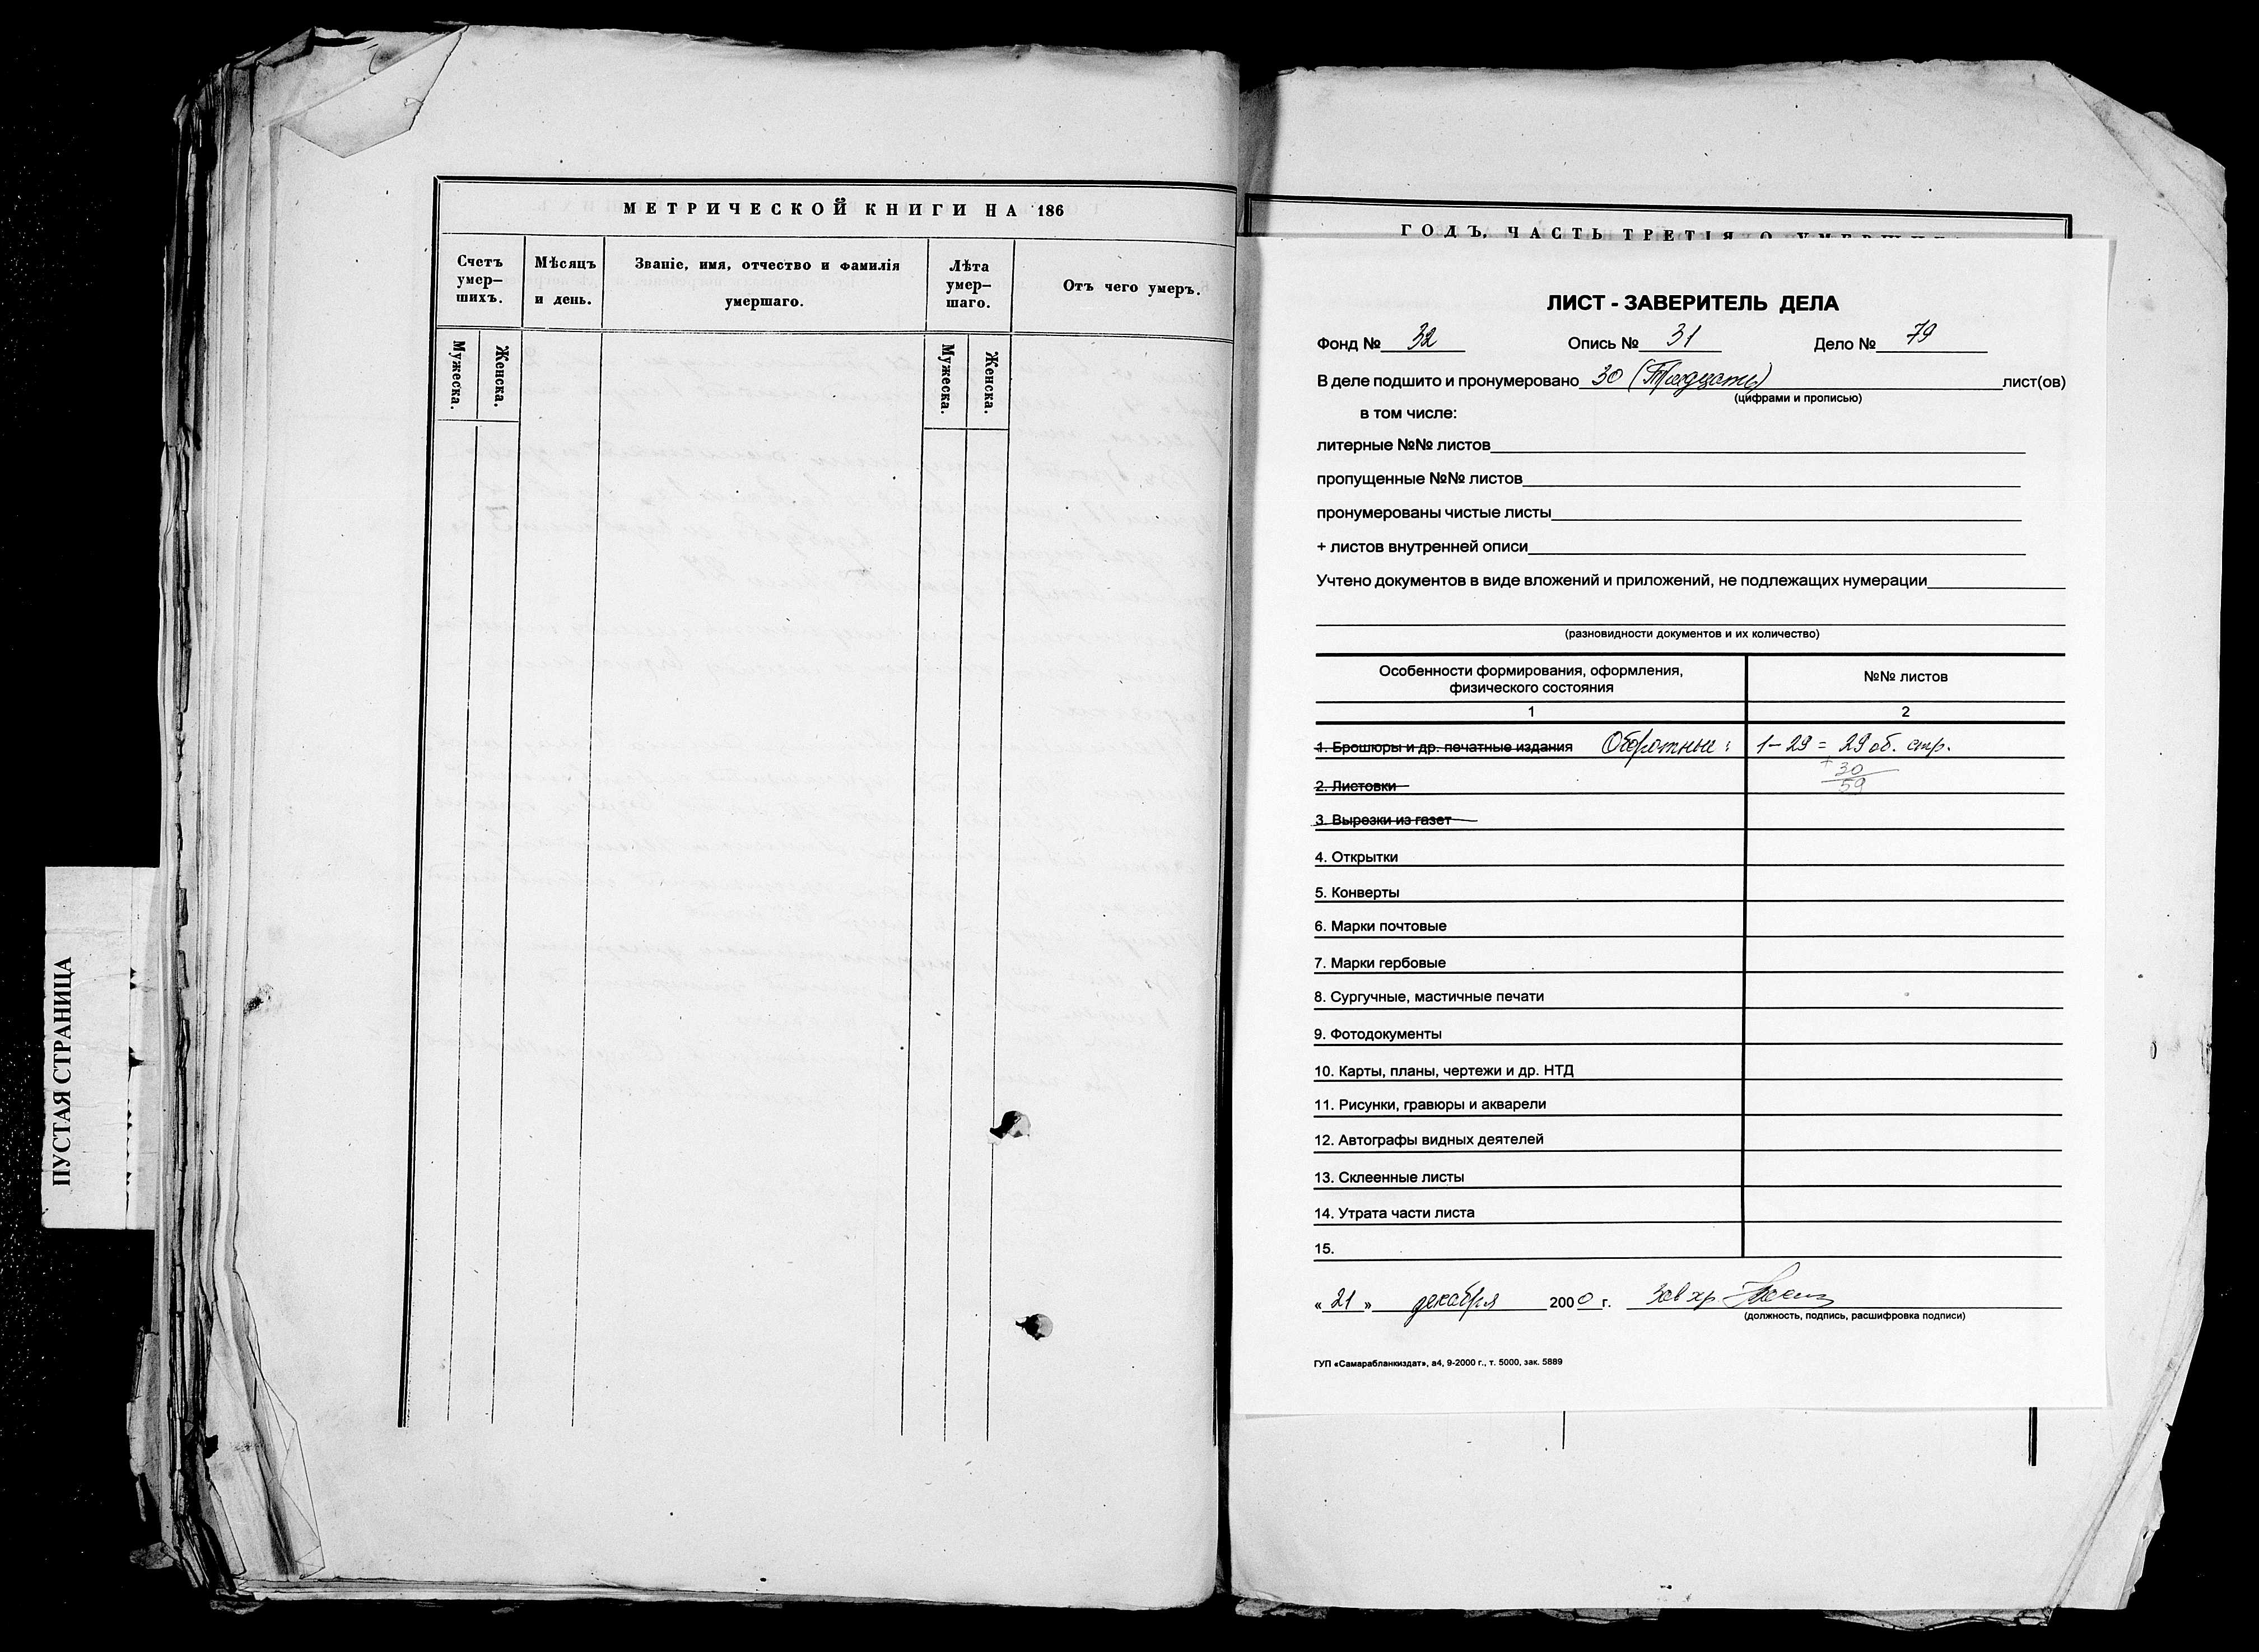 ПУСТАЯ СТРАНИЦА
МЕТРИЧЕСКОЙ КНИГИ НА 186
Счетъ умер-шихъ.
Мѣсяцъ и день.
Званіе, имя, отчество и фамилія умершаго.
Лѣта умер-шаго.
Отъ чего умеръ.
Мужеска.
Женска.
Мужеска.
Женска.
ГОДЪ, ЧАСТЬ ТРЕТІЯ О УМЕРШИХЪ
ЛИСТ - ЗАВЕРИТЕЛЬ ДЕЛА
Фонд № 32 Опись № 31 Дело № 79
В деле подшито и пронумеровано 30 (Тридцать) лист(ов)
(цифрами и прописью)
в том числе:
литерные №№ листов
пропущенные №№ листов
пронумерованы чистые листы
+ листов внутренней описи
Учтено документов в виде вложений и приложений, не подлежащих нумерации
(разновидности документов и их количество)
Особенности формирования, оформления, №№ листов
физического состояния
1 2
1. Брошюры и др. печатные издания Оборотные: 1-29 = 29 об. стр.
+ 30
2. Листовки 59
3. Вырезки из газет
4. Открытки
5. Конверты
6. Марки почтовые
7. Марки гербовые
8. Сургучные, мастичные печати
9. Фотодокументы
10. Карты, планы, чертежи и др. НТД
11. Рисунки, гравюры и акварели
12. Автографы видных деятелей
13. Склеенные листы
14. Утрата части листа
15.
«21» декабря 2000 г. Зав хр.
(должность, подпись, расшифровка подписи)
ГУП «Самарабланкиздат», а4, 9-2000 г., т. 5000, зак. 5889